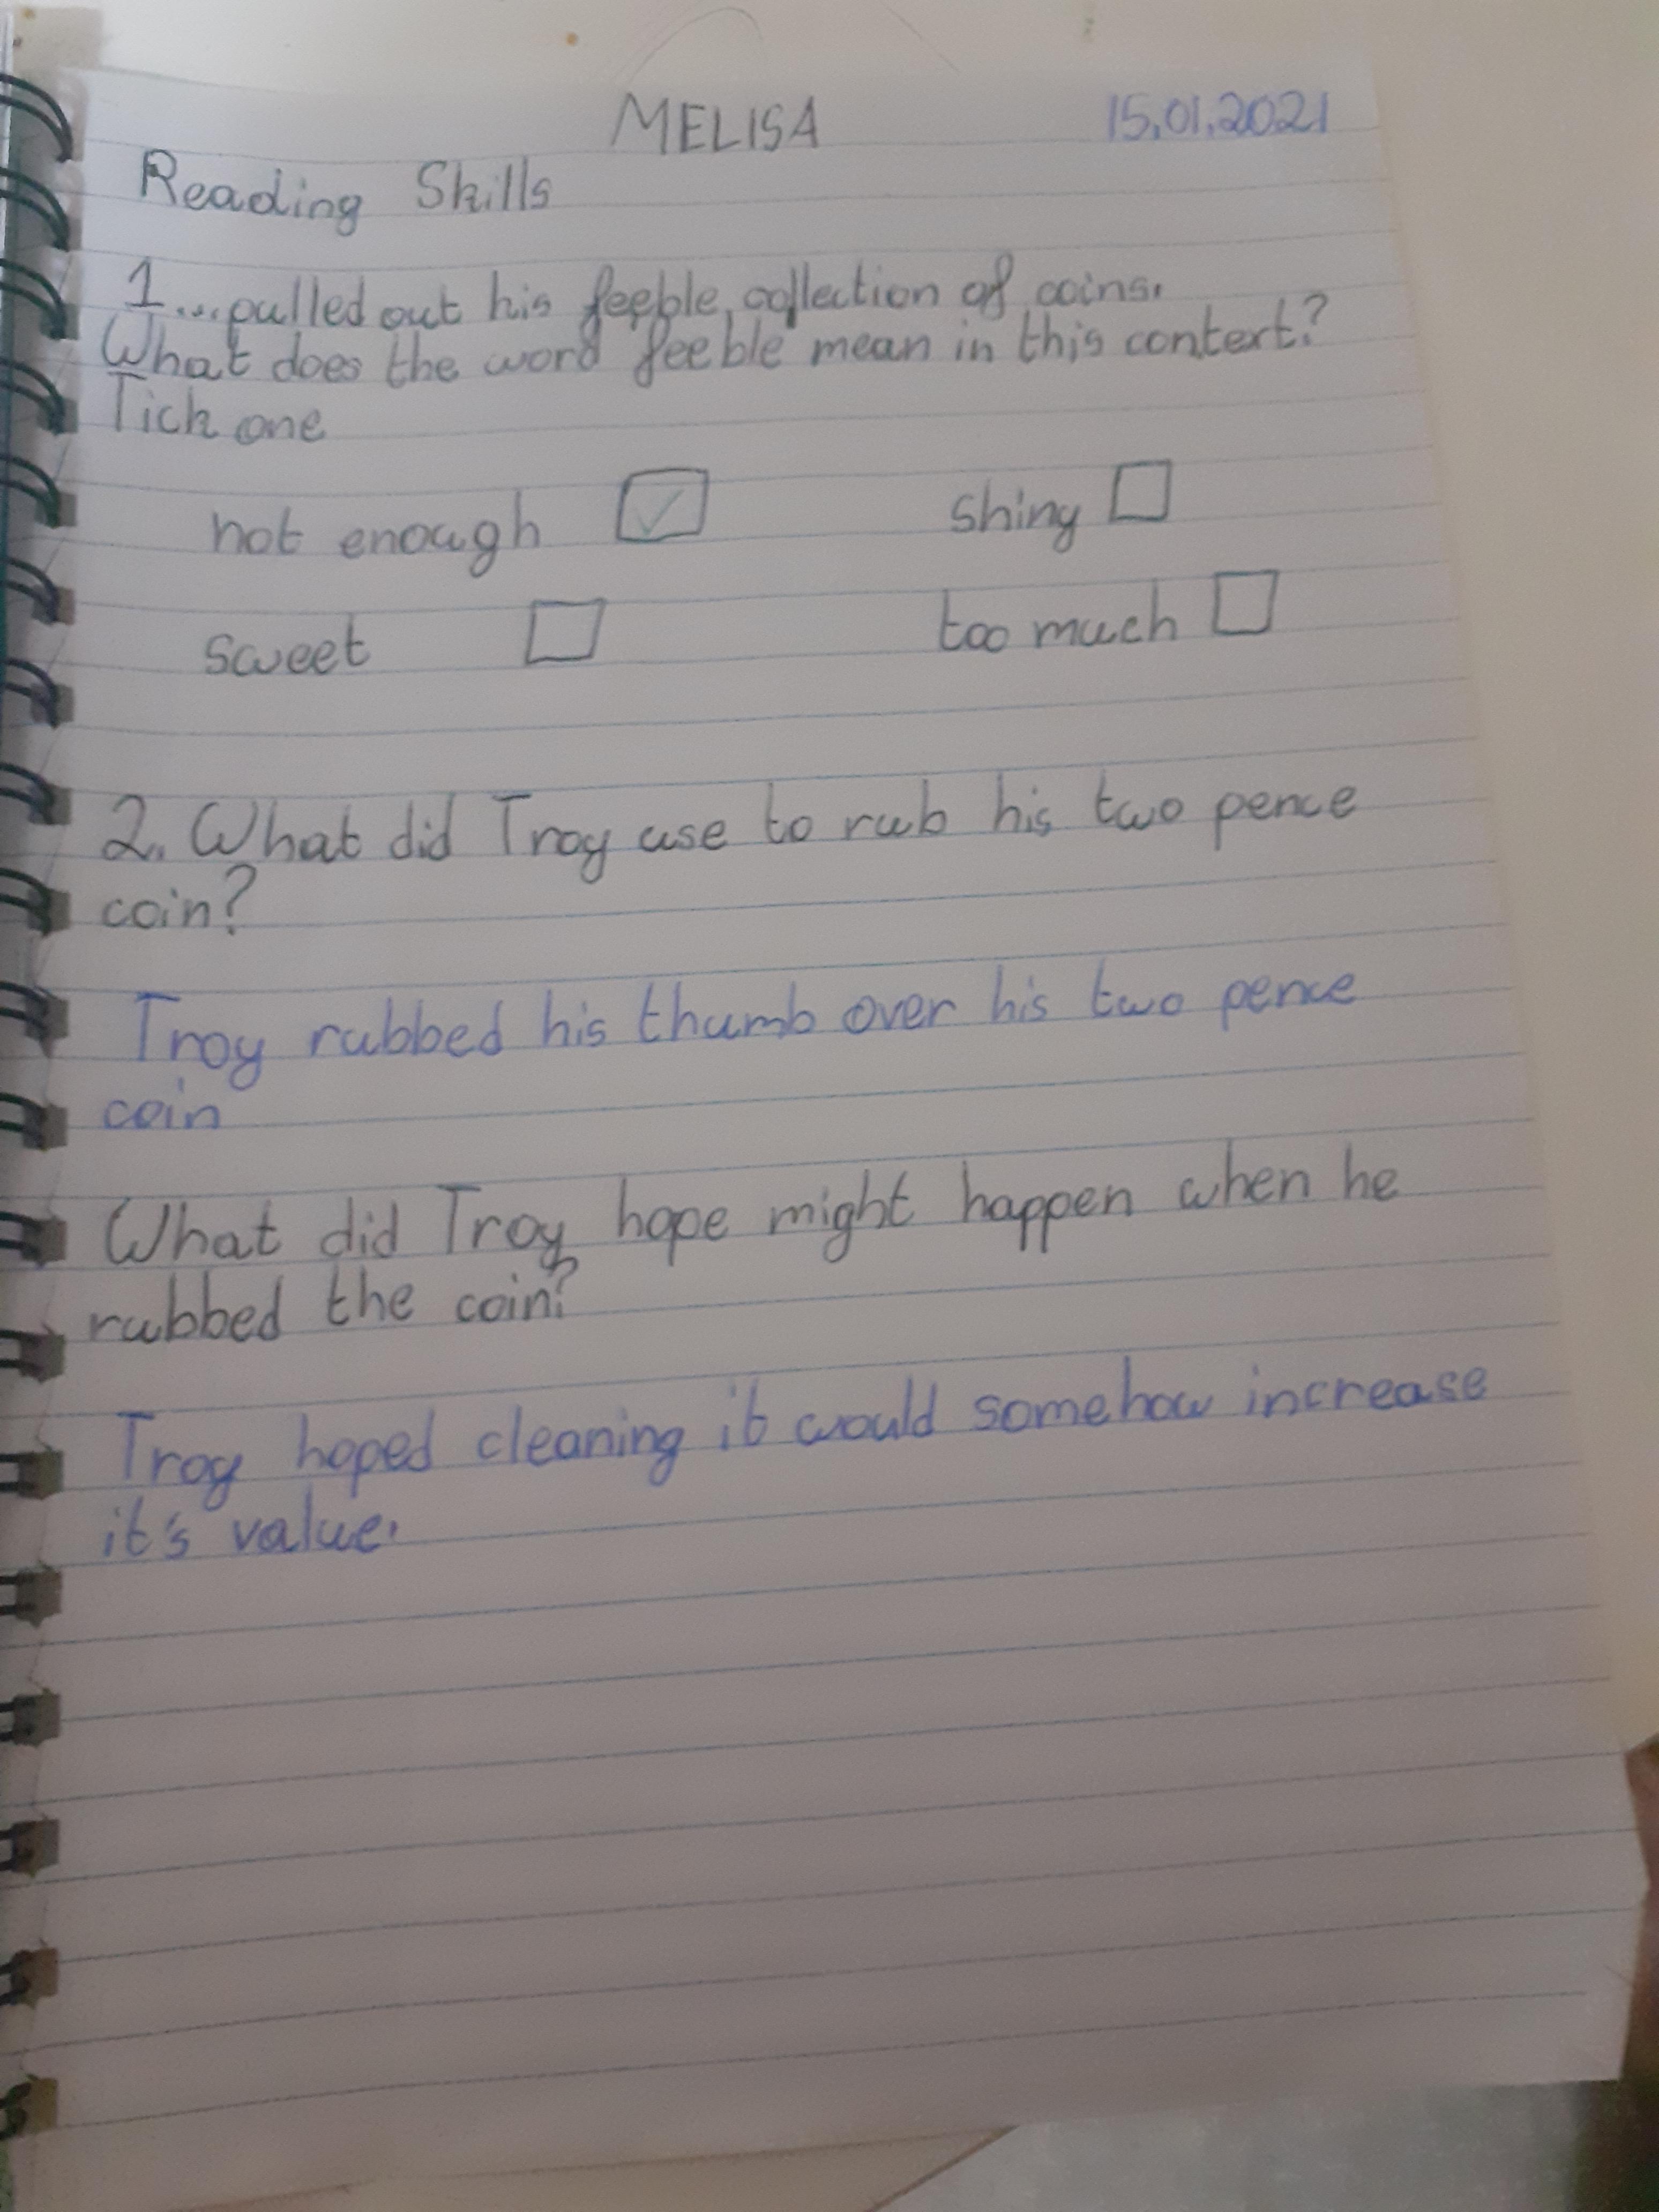 MELISA 15.01.2021
Reading Skills
1...pulled out his feeble collection of coins.
What does the word feeble mean in this context?
Tick one
not enough ☑ shiny ☐
sweet ☐ too much ☐
2. What did Troy use to rub his two pence
coin?
Troy rubbed his thumb over his two pence
coin
What did Troy hope might happen when he
rubbed the coin?
Troy hoped cleaning it would somehow increase
it's value.